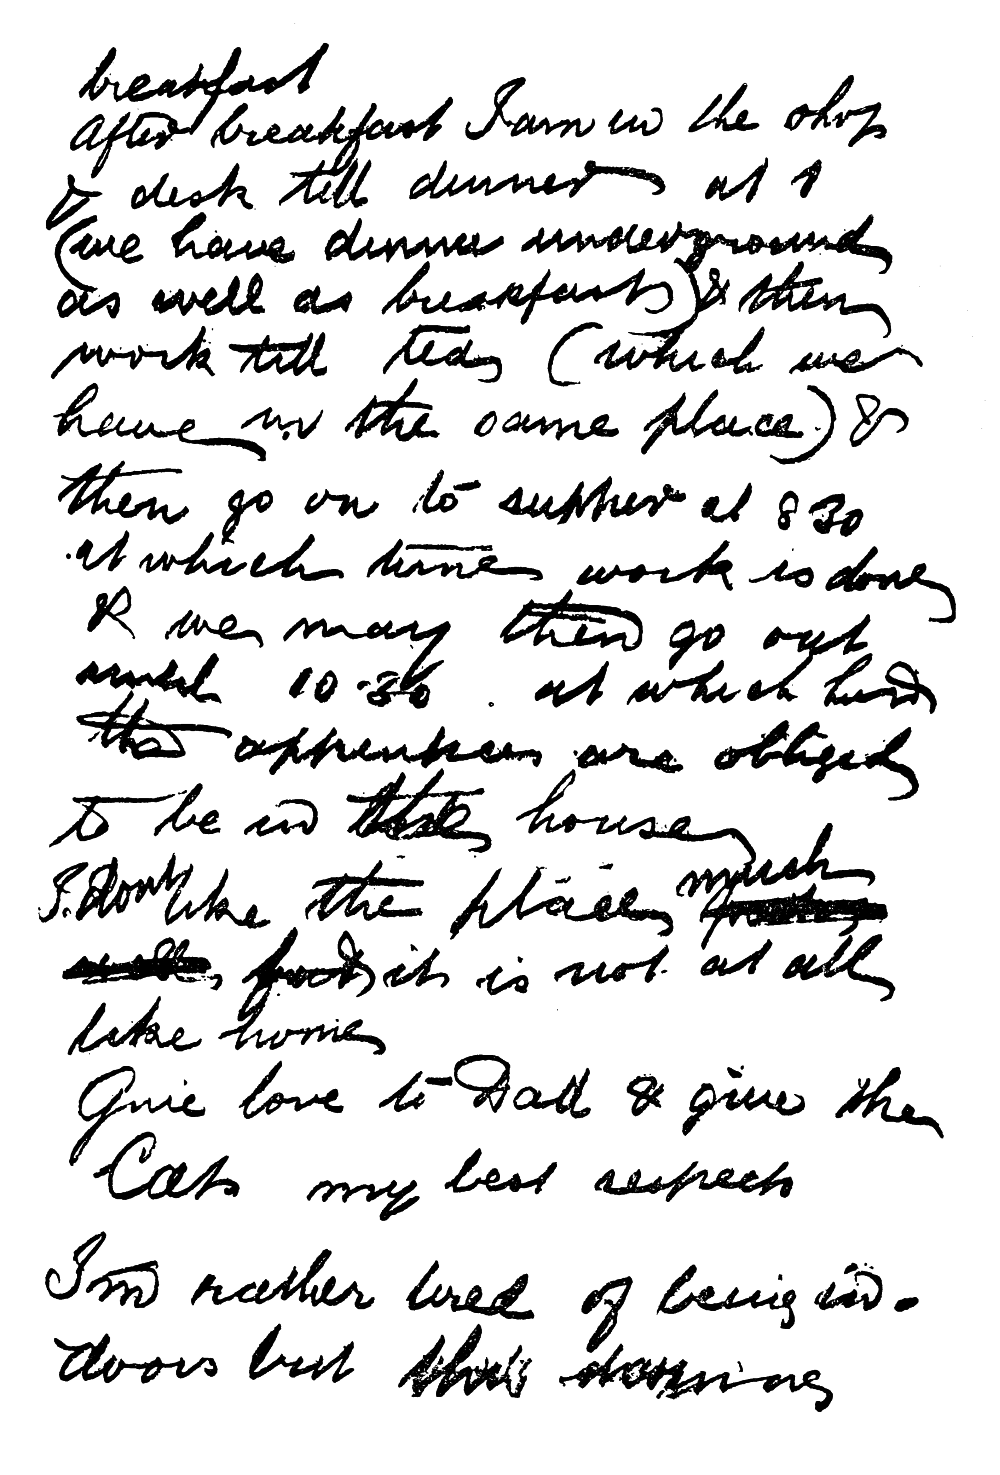 breakfast
After breakfast I am in the shop
& desk till dinner at 1
(we have dinner underground
as well as breakfast) & then
work till tea (which we
have in the same place) &
then go on to supper at 8 30
at which time work is done
& we may then go out
until 10.30 . at which hour
the apprentices are obliged
to be in the house
I dont like the place much
for it is not at all
like home
Give love to Dad & give the
Cats my best respects
I'm rather tired of being in-
doors but this